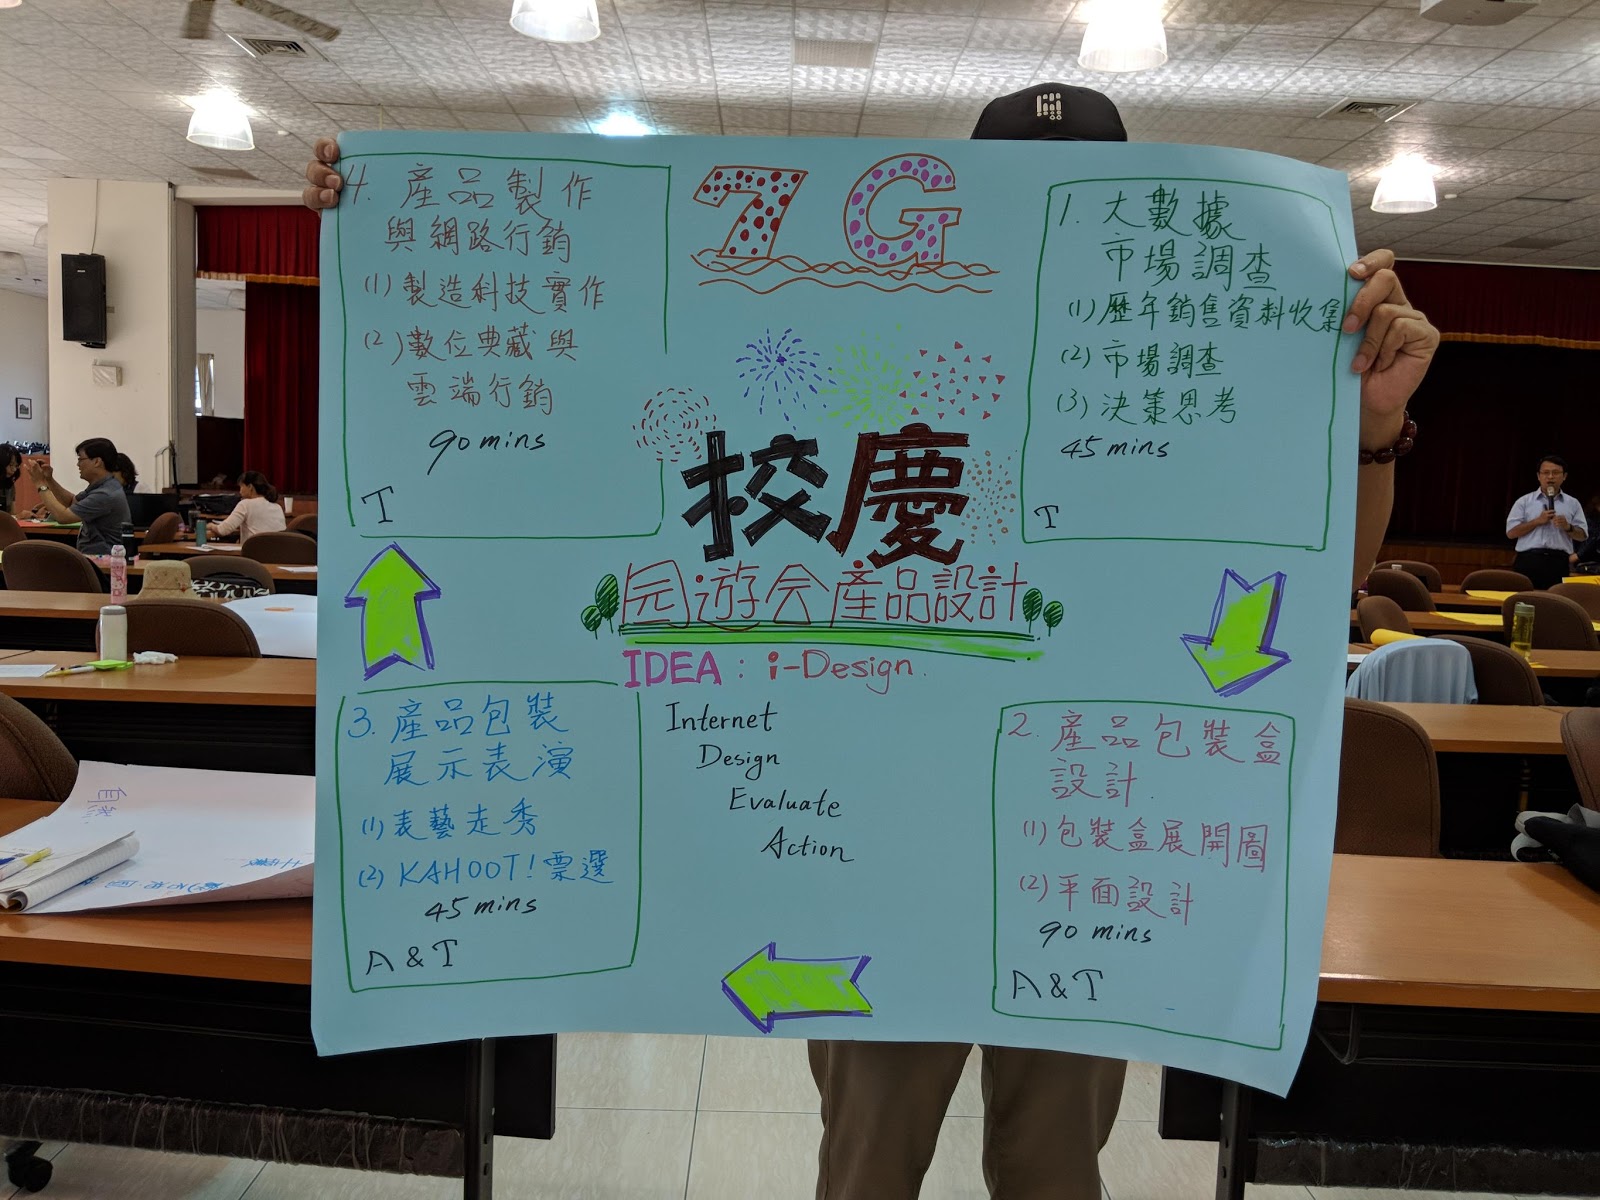 7G
校慶
园遊会產品設計
IDEA : i-Design.
Internet
Design
Evaluate
Action
1. 大數據
市場調查
(1) 歷年銷售資料收集
(2) 市場調查
(3) 決策思考
45 mins
T
2. 產品包裝盒
設計.
(1) 包裝盒展開圖
(2) 平面設計
90 mins
A & T
3. 產品包裝
展示表演
(1) 表藝走秀
(2) KAHOOT! 票選
45 mins
A & T
4. 產品製作
與網路行銷
(1) 製造科技實作
(2) 數位典藏與
雲端行銷
90 mins
T
自然